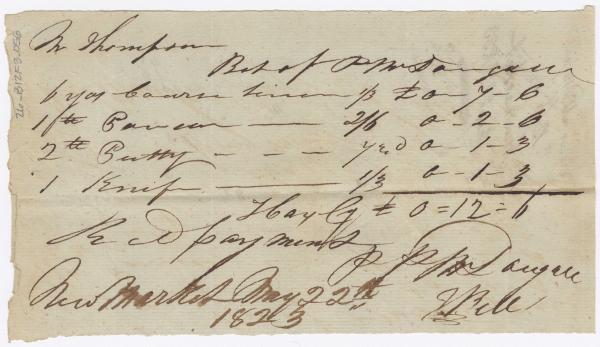 Mr Thompson
Bot of P McDougall
6 yds Coarse linen 1/3 £ 0 - 7 - 6
1 lb — 2/6 0 - 2 - 6
2 lb Putty - - - 7½d 0 - 1 - 3
1 Knife — 1/3 0 - 1 - 3
Hax Cy £ 0 = 12 = 6
Recd payment
P P McDougall
New Market May 22th
1823
Bell
26-B12F3-056